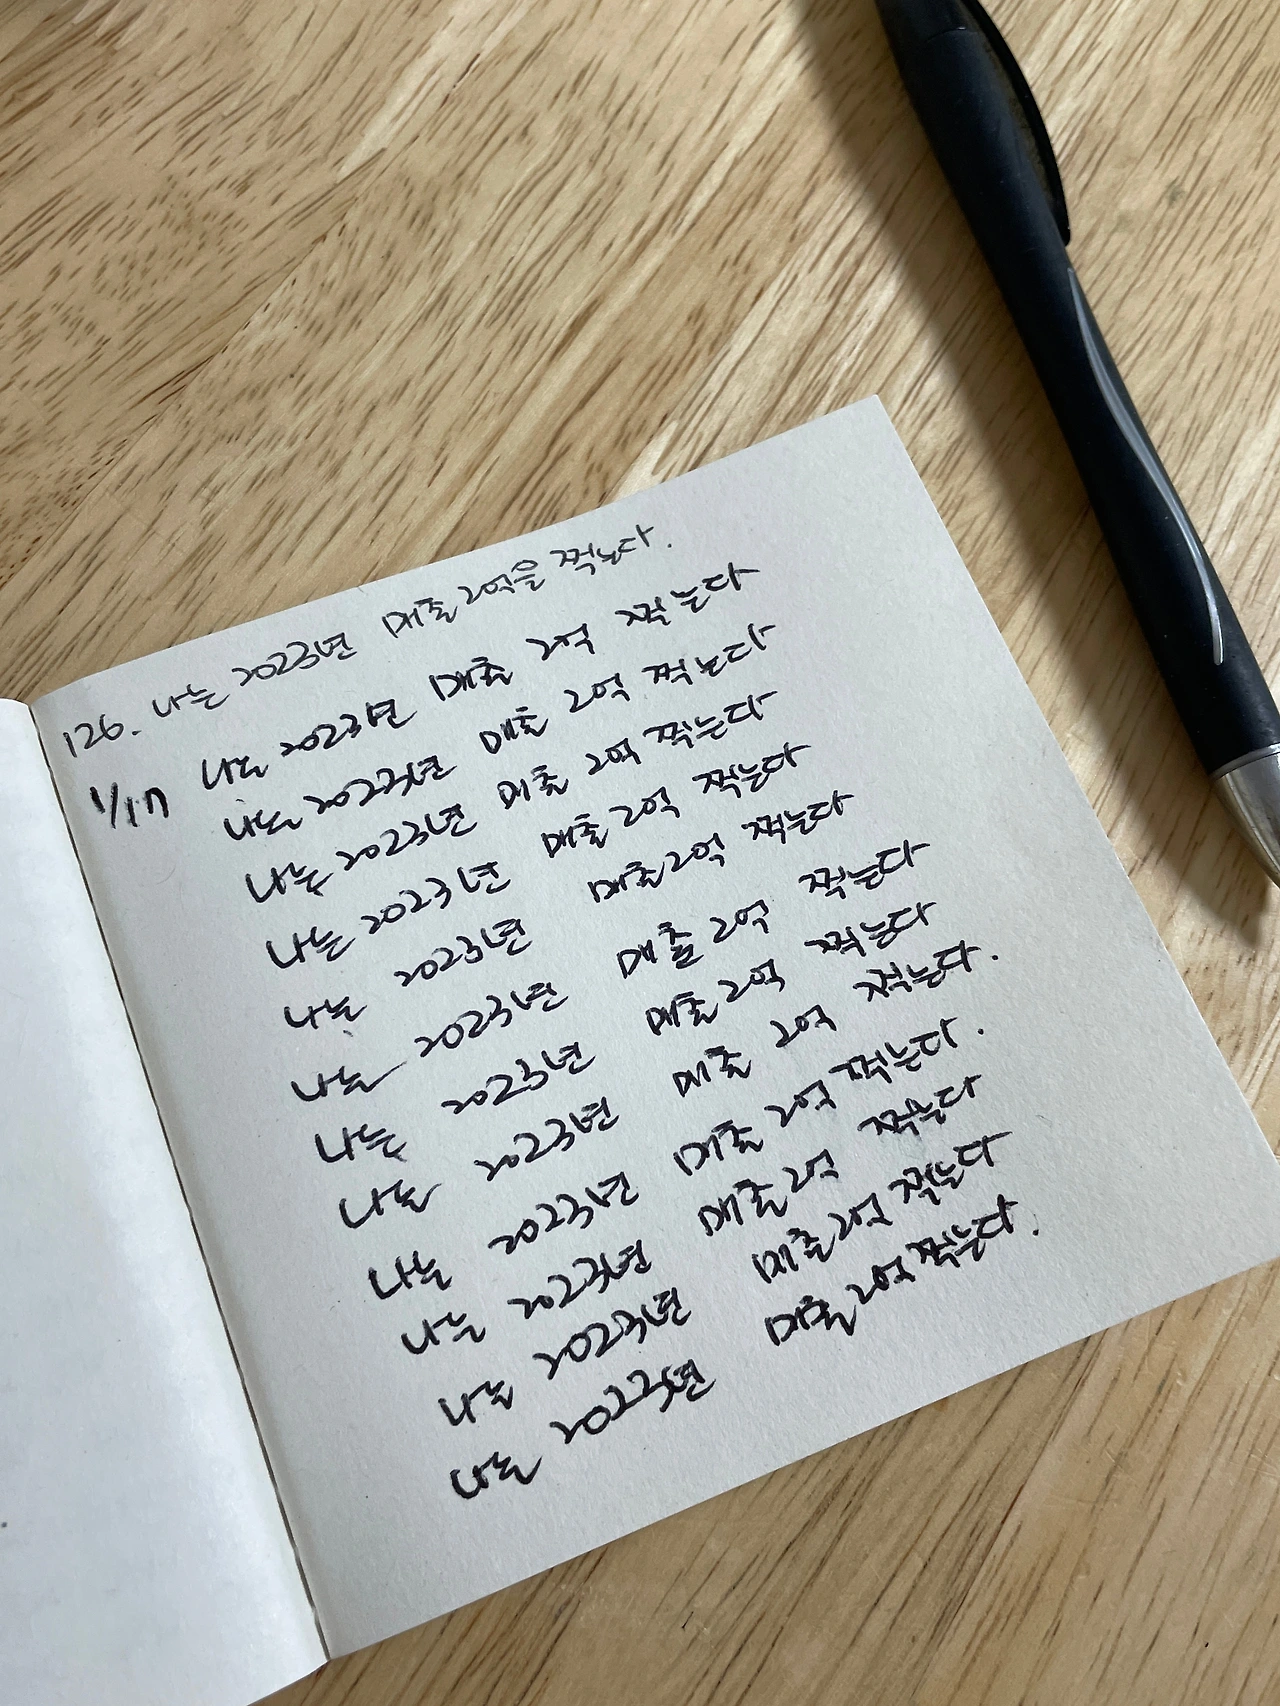 126. 나는 2023년 매출 2억을 찍는다.
1/17 나는 2023년 매출 2억 찍는다
나는 2023년 매출 2억 찍는다
나는 2023년 매출 2억 찍는다
나는 2023년 매출 2억 찍는다
나는 2023년 매출 2억 찍는다
나는 2023년 매출 2억 찍는다
나는 2023년 매출 2억 찍는다
나는 2023년 매출 2억 찍는다.
나는 2023년 매출 2억 찍는다.
나는 2023년 매출 2억 찍는다
나는 2023년 매출 2억 찍는다
나는 2023년 매출 2억 찍는다.